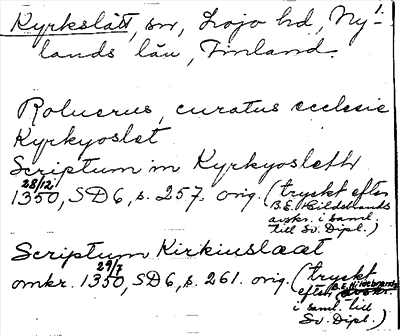 Kyrkslätt, sn, Lojo hd, Ny-
1.
lands län, Finland.
Roluerus, curatus ecclesie
Kyrkyoslet
Scriptum in Kyrkyosleth
28/12 1350, SD6, s. 257. orig. (tryckt efter
B.E. Hildebrands
avskr. i saml.
till Sv. Dipl.)
Scriptum Kirkiuslæet
omkr. 29/7 1350, SD6, s. 261. orig. (tryckt
efter B.E. Hildebrands
avskr.
i saml. till
Sv. Dipl.)